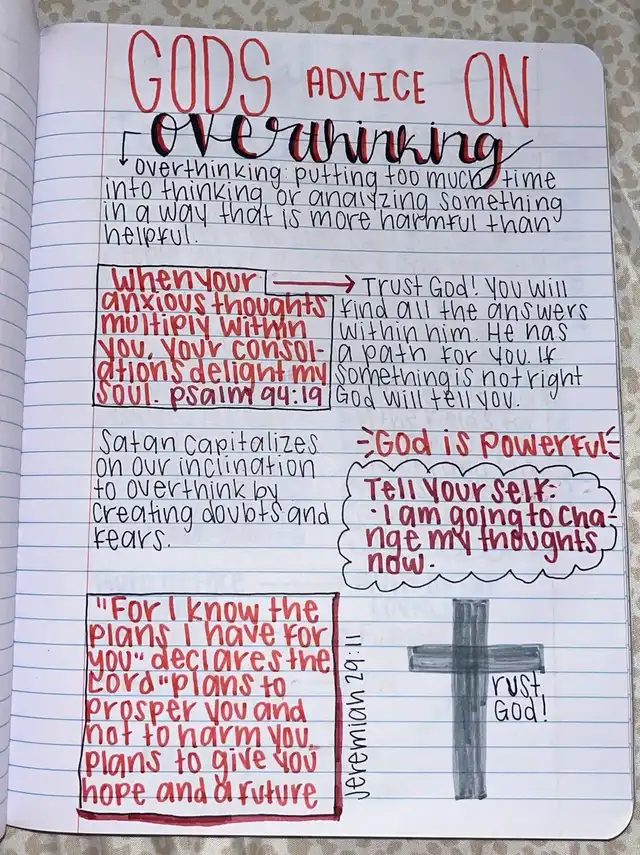 GODS ADVICE ON
overthinking
overthinking: putting too much time
into thinking or analyzing something
in a way that is more harmful than
helpful.
When your
anxious thoughts
multiply within
you, your consol-
ations delight my
soul. psalm 94:19
Trust God! You will
find all the answers
within him. He has
a path for you. If
something is not right
God will tell you.
Satan capitalizes
on our inclination
to overthink by
creating doubts and
fears.
God is powerful
Tell Your self:
· I am going to cha-
nge my thoughts
now.
"For I know the
plans I have for
you" declares the
Lord "plans to
prosper you and
not to harm you,
plans to give you
hope and a future
Jeremiah 29:11
rust
God!